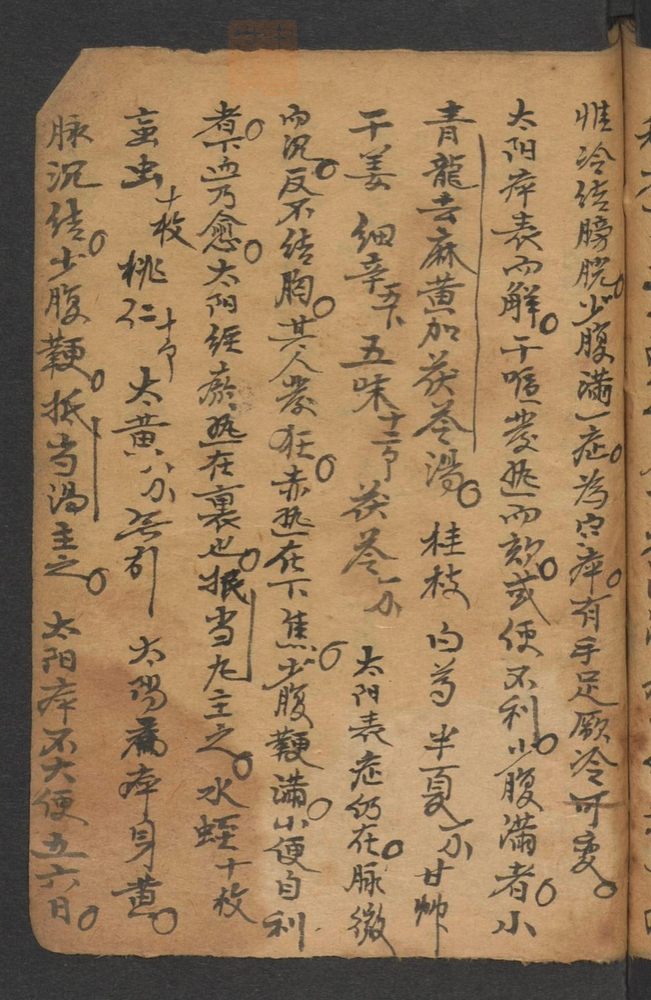 惟冷结膀胱少腹满一症为宜痒有手足厥冷可变
太阳痒表而解干呕发热而欬或便不利小腹满者小
青龍去麻黄加茯苓湯 桂枝 白芍 半夏 甘艸
干姜 细辛 五味 茯苓 太阳表症仍在脉微
而沉反不结胸其人发狂热在下焦少腹鞕满小便自利
者下血乃愈太阳经瘀热在裏也抵当九主之 水蛭十枚
虻虫十枚 桃仁 大黄 太陽病身黄
脉沉结少腹鞕抵当湯主之 太阳痒不大便五六日